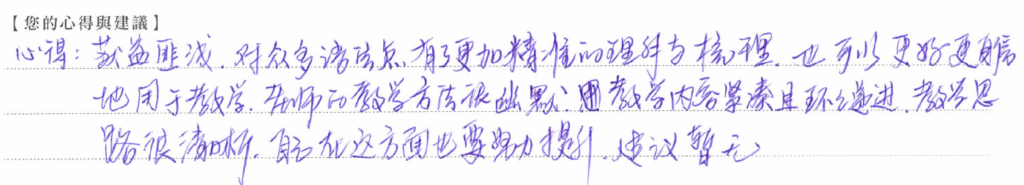 【您的心得與建議】
心得：获益匪浅，对众多语法点有了更加精准的理解与梳理，也可以更好更自信
地用于教学，老师的教学方法很幽默，教学内容紧凑且环环递进，教学思
路很清晰，自己在这方面也要努力提升，建议暂无